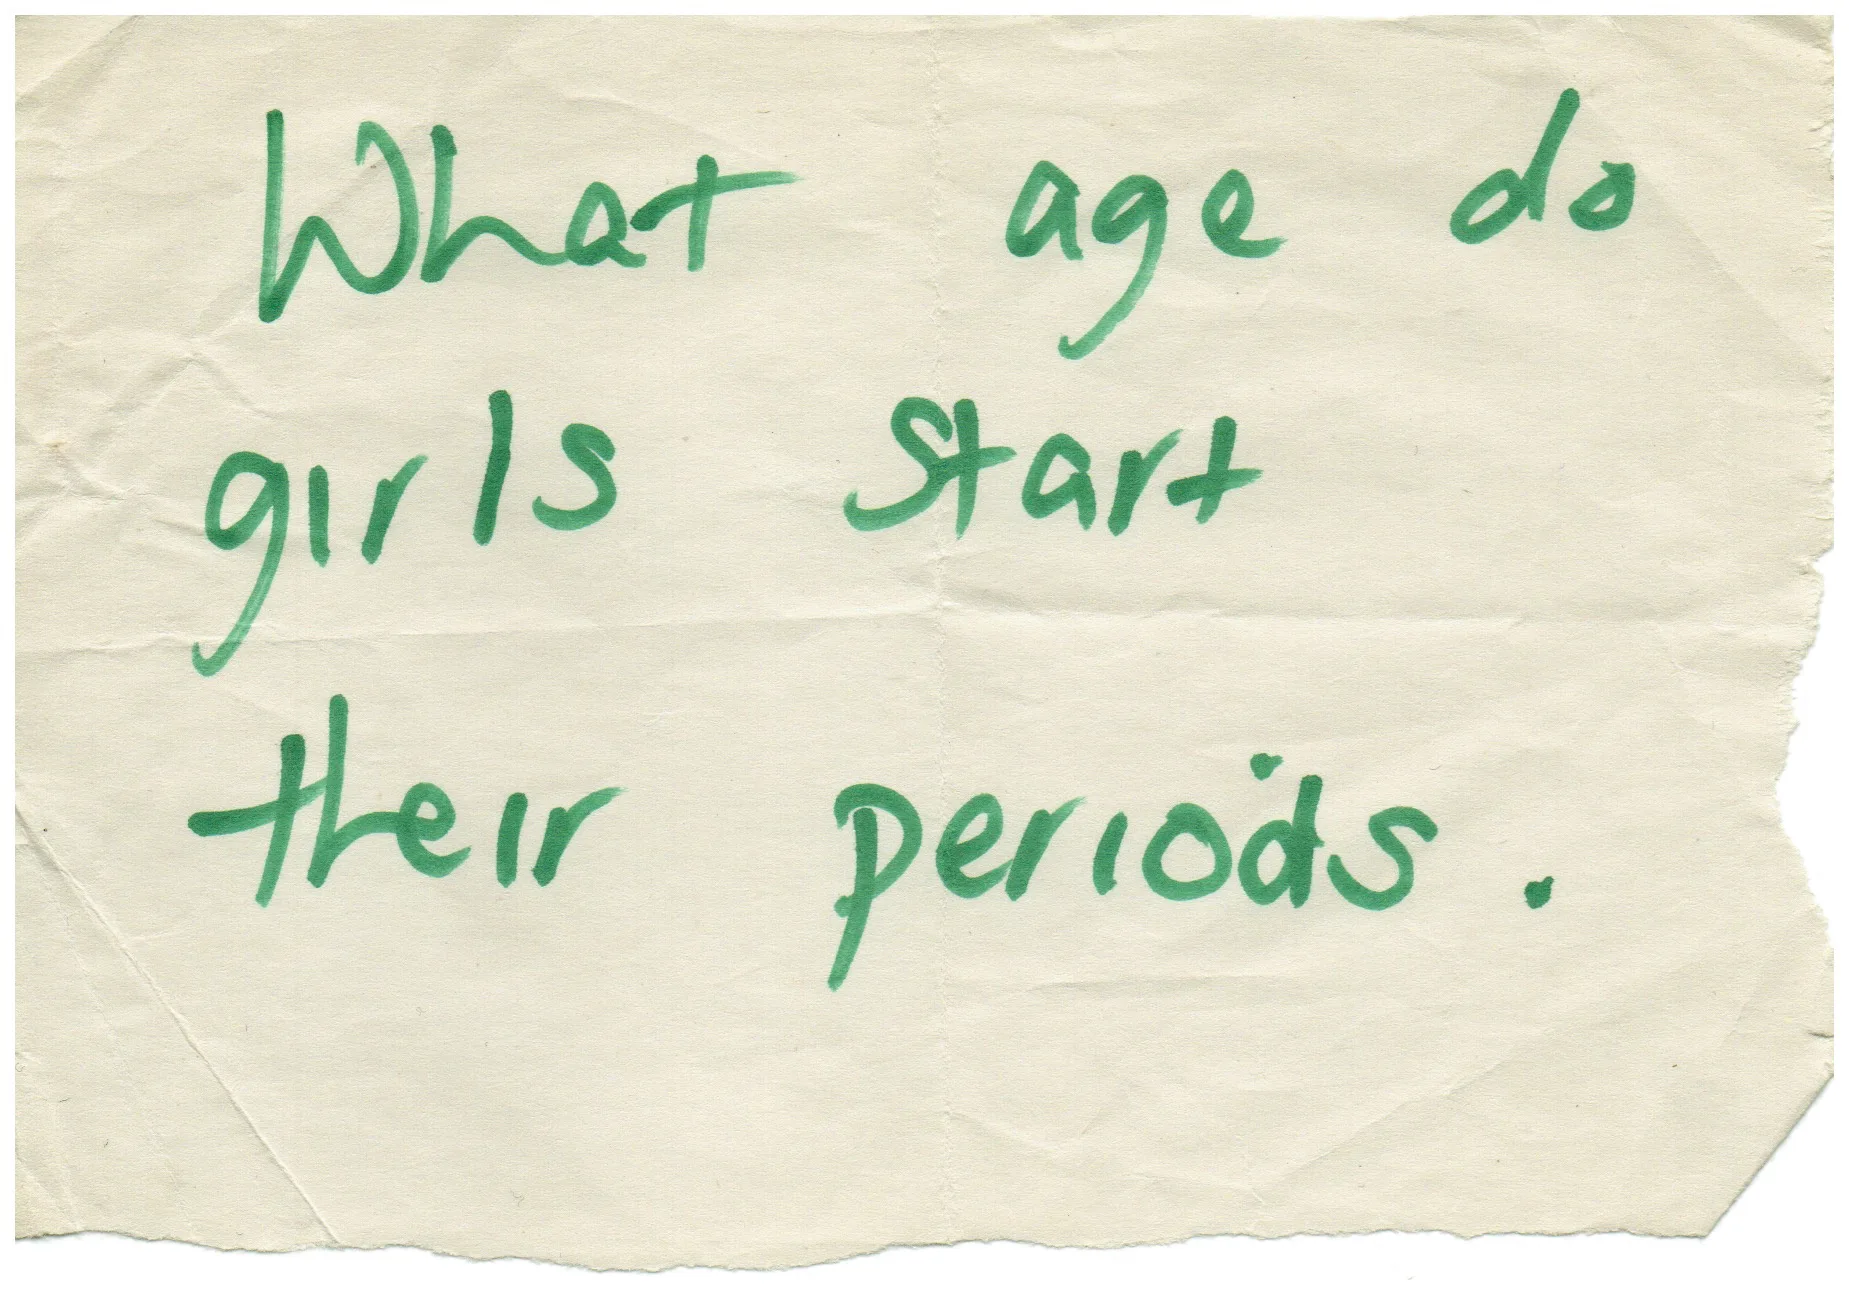 What age do
girls start
their periods.